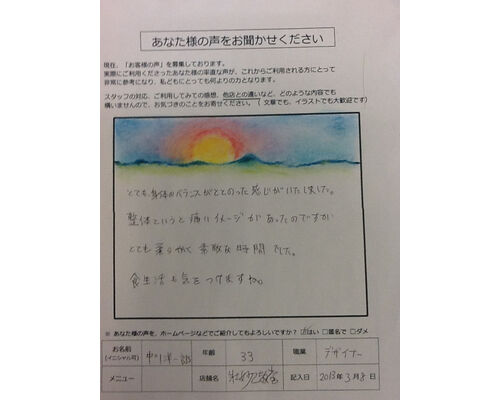 あなた様の声をお聞かせください
現在、「お客様の声」を募集しております。
実際にご利用くださったあなた様の率直な声が、これからご利用される方にとって
非常に参考になり、私どもにとっても何よりの力となります。
スタッフの対応、ご利用してみての感想、他店との違いなど、どのような内容でも
構いませんので、お気づきのことをお寄せください。（ 文章でも、イラストでも大歓迎です）
とても、身体のバランスがととのった感じがいたしました。
整体というと痛いイメージがあったのですが
とても柔らかく素敵な時間でした。
食生活も気をつけますね。
※ あなた様の声を、ホームページなどでご紹介してもよろしいですか？ ☑はい □匿名で □ダメ
お名前 年齢 33 職業 デザイナー
(イニシャル可)
メニュー 店舗名 記入日 2013年3月8日